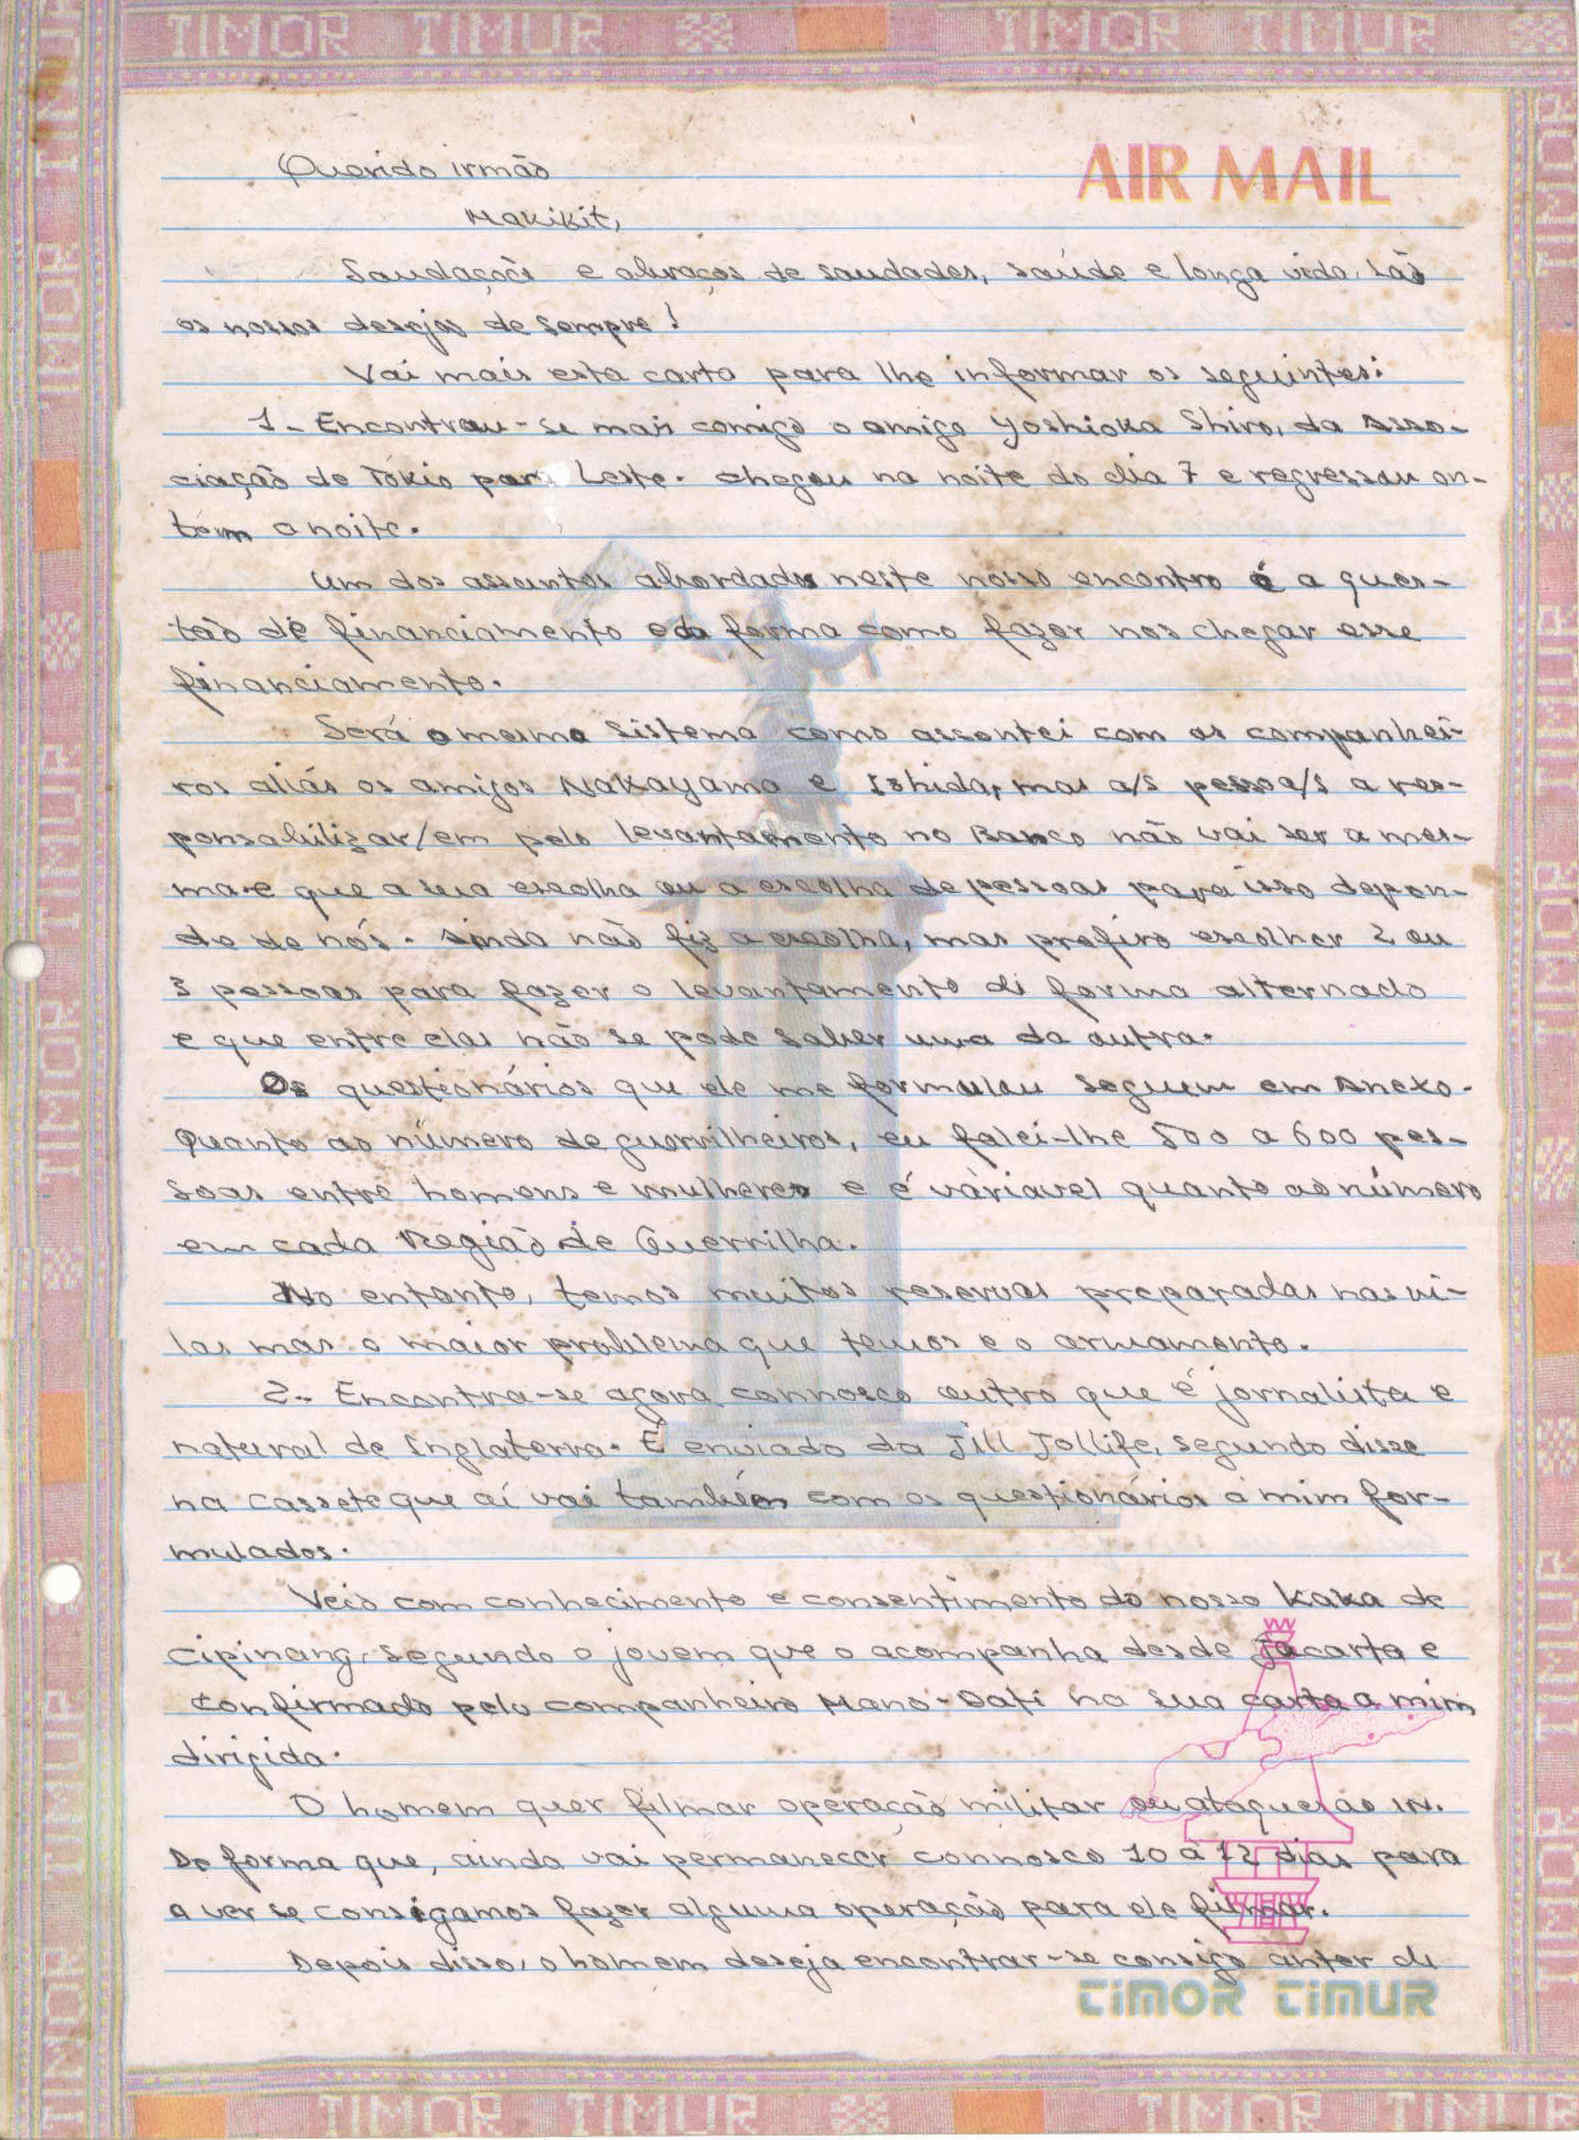 TIMOR TIMUR TIMOR TIMUR
AIR MAIL
Querido irmão
Makikit,
Saudações e abraços de saudades, saúde e longa vida, são
os nossos desejos de sempre!
Vai mais esta carta para lhe informar os seguintes:
1- Encontrou-se mais comigo o amigo Yoshioka Shiro, da Asso-
ciação de Tókio par Leste. Chegou na noite do dia 7 e regressou on-
tem a noite.
Um dos assuntos abordados neste nosso encontro é a ques-
tão de financiamento e da forma como fazer nos chegar esse
financiamento.
Será o mesmo sistema como assentei com os companhei-
ros aliás os amigos Nakayama e Ishida, mas a/s pessoa/s a res-
ponsabilizar/em pelo levantamento no Banco não vai ser a mes-
ma e que a sua escolha ou a escolha de pessoas para isso depen-
de de nós. Ainda não fiz a escolha, mas prefiro escolher 2 ou
3 pessoas para fazer o levantamento di forma alternado
e que entre elas não se pode saber uma da outra.
Os questionários que ele me formulou seguem em Anexo.
Quanto ao número de guerrilheiros, eu falei-lhe 500 a 600 pes-
soas entre homens e mulheres e é váriavel quanto ao número
em cada Região de Guerrilha.
No entanto, temos muitas reservas preparadas nas vi-
las mas o maior problema que temos e o armamento.
2- Encontra-se agora connosco outro que é jornalista e
natural de Inglaterra. É enviado da Jill Jollife, segundo disse
na cassete que aí vai também com os questionários a mim for-
mulados.
Veio com conhecimento e consentimento do nosso Kaka de
Cipinang, segundo o jovem que o acompanha desde Jacarta e
confirmado pelo companheiro Mano-Sati na sua carta a mim
dirigida.
O homem quer filmar operação militar ou ataques ao IN.
De forma que, ainda vai permanecer connosco 10 à 12 dias para
a ver se consigamos fazer alguma operação para ele filmar.
Depois disso, o homem deseja encontrar-se consigo antes di
TIMOR TIMUR
TIMOR TIMUR TIMOR TIMUR